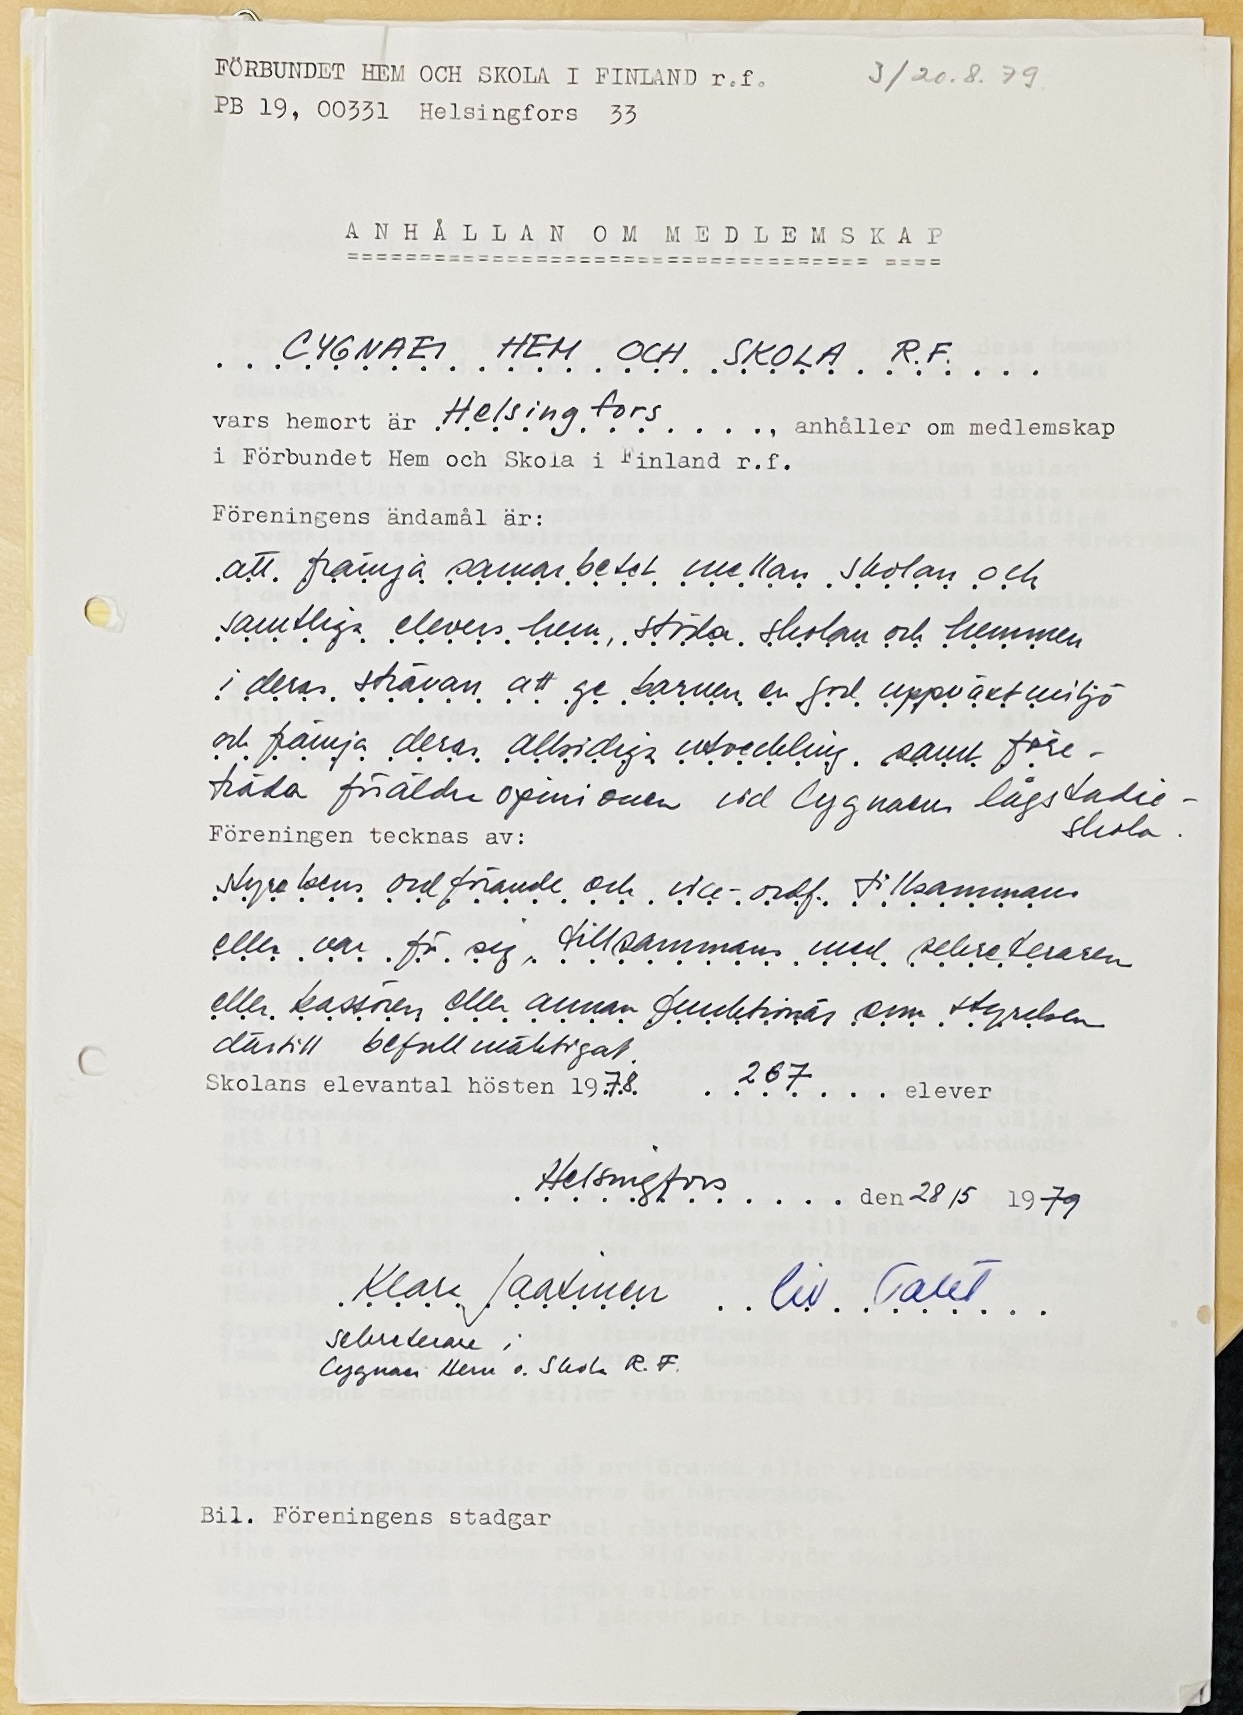 FÖRBUNDET HEM OCH SKOLA I FINLAND r.f.
3/20.8.79
PB 19, 00331 Helsingfors 33
ANHÅLLAN OM MEDLEMSKAP
CYGNAEI HEM OCH SKOLA R.F.
vars hemort är Helsingfors, anhåller om medlemskap
i Förbundet Hem och Skola i Finland r.f.
Föreningens ändamål är:
att främja samarbetet mellan skolan och
samtliga elevers hem, stöda skolan och hemmen
i deras strävan att ge barnen en god uppväxtmiljö
och främja deras allsidiga utveckling samt före-
träda föräldraopinionen vid Cygnaeus lågstadie-
skola.
Föreningen tecknas av:
styrelsens ordförande och vice-ordf. tillsammans
eller var för sig, tillsammans med sekreteraren
eller kassören eller annan funktionär som styrelsen
därtill befullmäktigat.
Skolans elevantal hösten 1978. 267 elever
Helsingfors den 28/5 1979
Klara Jaatinen Liv
sekreterare i
Cygnaei Hem o. Skola R.F.
Bil. Föreningens stadgar